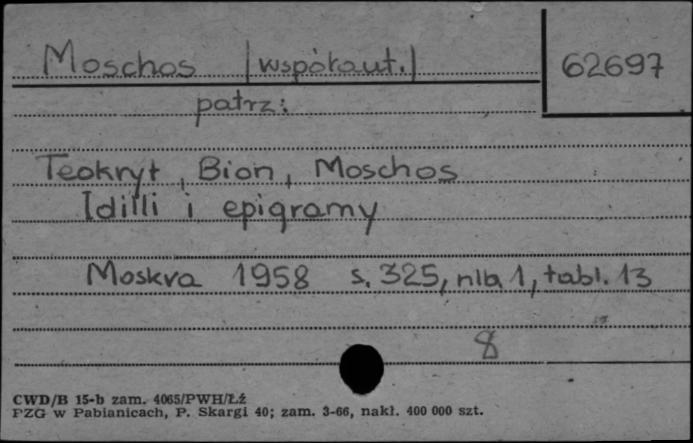 Moschos |współaut.|
62697
patrz:
Teokryt, Bion, Moschos
Idilli i epigramy
Moskva 1958 s. 325, nlb. 1, tabl. 13
8
CWD/B 15-b zam. 4065/PWH/Łź
PZG w Pabianicach, P. Skargi 40; zam. 3-66, nakł. 400 000 szt.